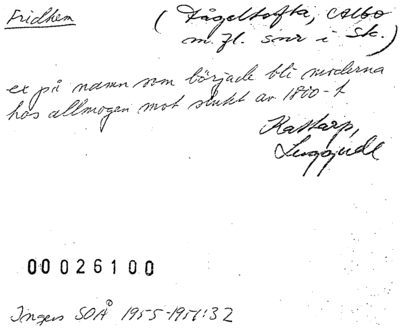 Fridhem
(Fågeltofta, Albo
m.fl. snr i Sk.)
ex på namn som började bli moderna
hos allmogen mot slutet av 1800-t
Kattarp,
Luggude
00026100
Ingers SOÅ 1955-1957:32